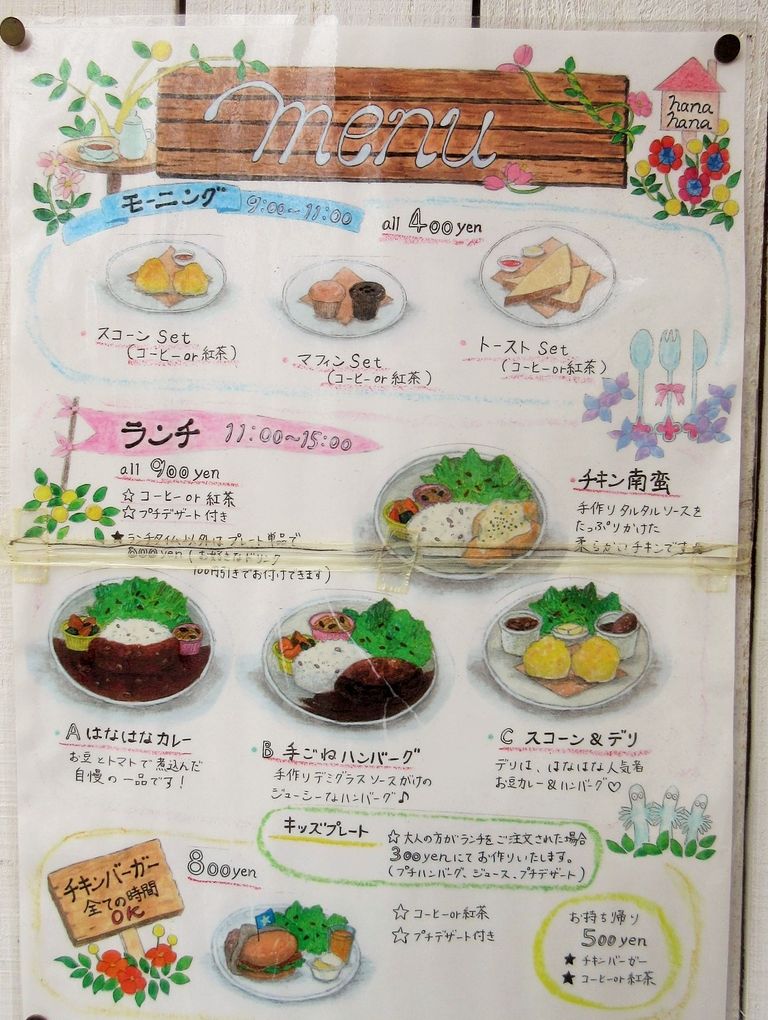 menu
hana
hana
モーニング 9:00~11:00
all 400 yen
スコーン Set
(コーヒー or 紅茶)
マフィン Set
(コーヒー or 紅茶)
トースト Set
(コーヒー or 紅茶)
ランチ 11:00~15:00
all 900 yen
☆ コーヒー or 紅茶
☆ プチデザート付き
★ ランチタイム以外はプレート単品で
800yen (お好きなドリンク
100円引きでお付けできます)
チキン南蛮
手作りタルタルソースを
たっぷりかけた
柔らかいチキンです☆
A はなはなカレー
お豆とトマトで煮込んだ
自慢の一品です!
B 手ごねハンバーグ
手作りデミグラスソースがけの
ジューシーなハンバーグ♪
C スコーン & デリ
デリは、はなはな人気者
お豆カレー&ハンバーグ♡
キッズプレート
☆ 大人の方がランチをご注文された場合
300yenにてお作りいたします。
(プチハンバーグ、ジュース、プチデザート)
チキンバーガー
全ての時間
OK
800yen
☆ コーヒー or 紅茶
☆ プチデザート付き
お持ち帰り
500yen
★ チキンバーガー
★ コーヒー or 紅茶